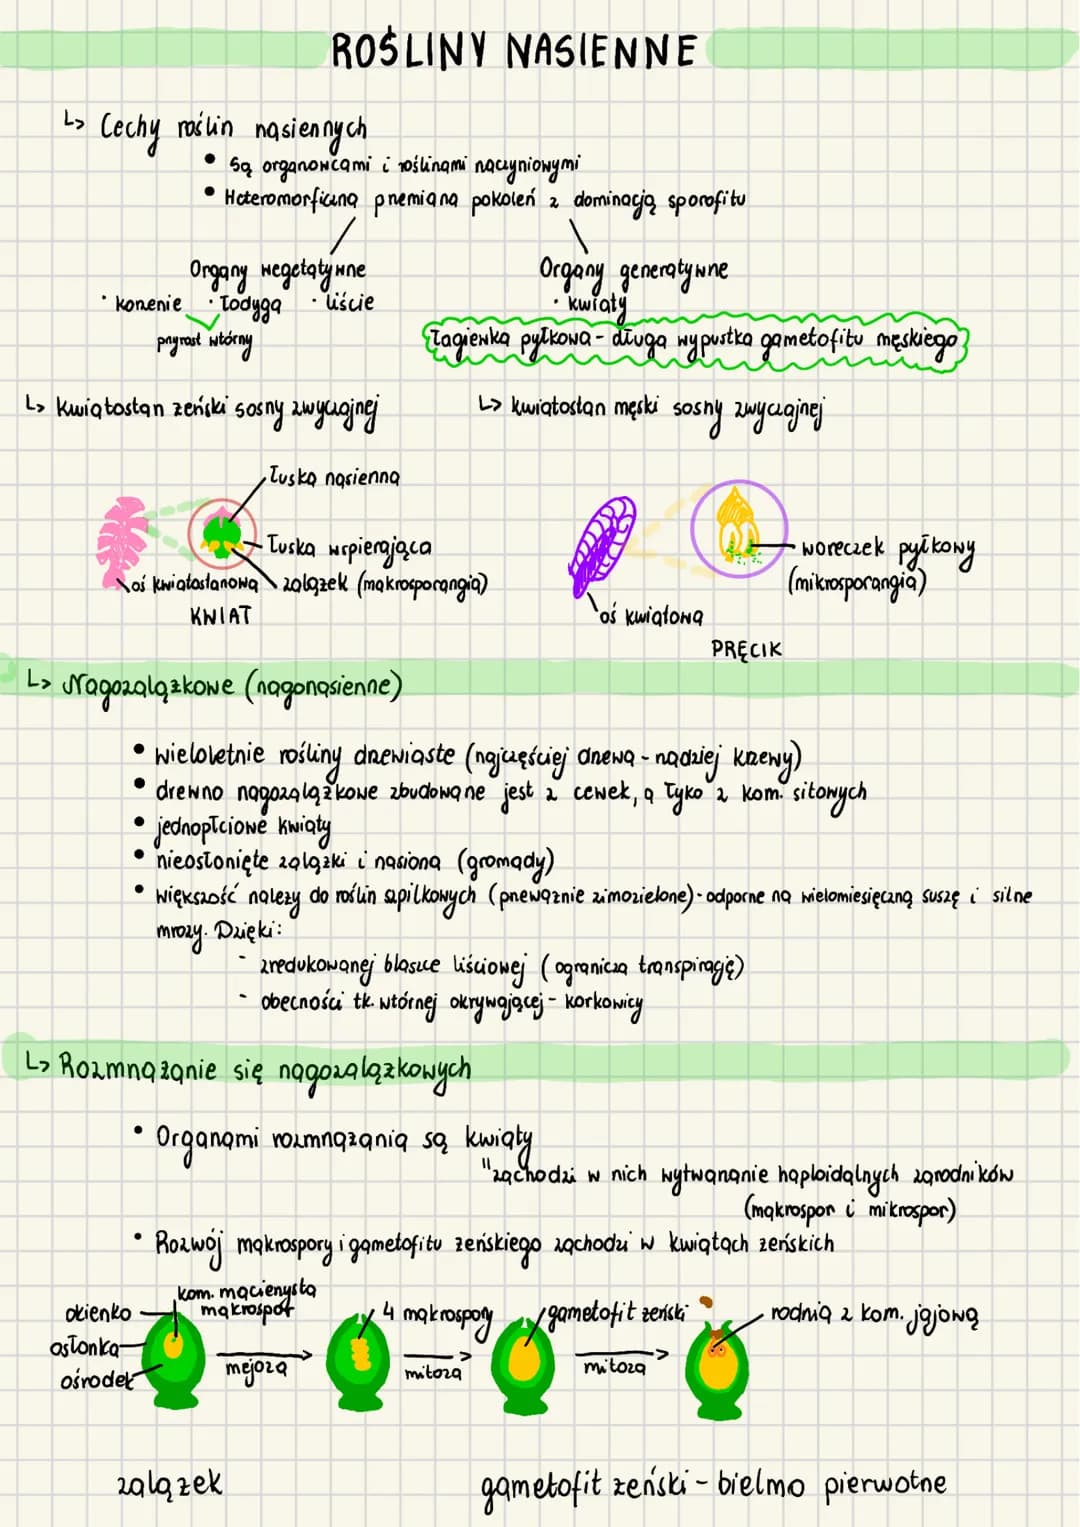 ROŚLINY NASIENNE
↳ Cechy roślin nasiennych
• Są organowcami i roślinami naczyniowymi
• Heteromorficzna przemiana pokoleń z dominacją sporofitu
Organy wegetatywne
Organy generatywne
· korzenie · łodyga · liście
· kwiaty
przyrost wtórny
Łagiewka pyłkowa - długa wypustka gametofitu męskiego
↳ Kwiatostan żeński sosny zwyczajnej
↳ kwiatostan męski sosny zwyczajnej
łuska nasienna
łuska wspierająca
oś kwiatostanowa
zalążek (makrosporangia)
KWIAT
woreczek pyłkowy
(mikrosporangia)
oś kwiatowa
PRĘCIK
↳ Nagozalążkowe (nagonasienne)
• wieloletnie rośliny drzewiaste (najczęściej drzewa - rzadziej krzewy)
• drewno nagozalążkowe zbudowane jest z cewek, a łyko z kom. sitowych
• jednopłciowe kwiaty
• nieosłonięte zalążki i nasiona (gromady)
• większość należy do roślin szpilkowych (przeważnie zimozielone) - odporne na wielomiesięczną suszę i silne
mrozy. Dzięki:
- zredukowanej blaszce liściowej (ogranicza transpirację)
- obecności tk. wtórnej okrywającej - korkowicy
↳ Rozmnażanie się nagozalążkowych
• Organami rozmnażania są kwiaty
"zachodzi w nich wytwarzanie haploidalnych zarodników
(makrospor i mikrospor)
• Rozwój makrospory i gametofitu żeńskiego zachodzi w kwiatach żeńskich
kom. macierzysta
makrospor
okienko
osłonka
ośrodek
mejoza
4 makrospory
mitoza
gametofit żeński
mitoza
rodnia z kom. jajową
zalążek
gametofit żeński - bielmo pierwotne